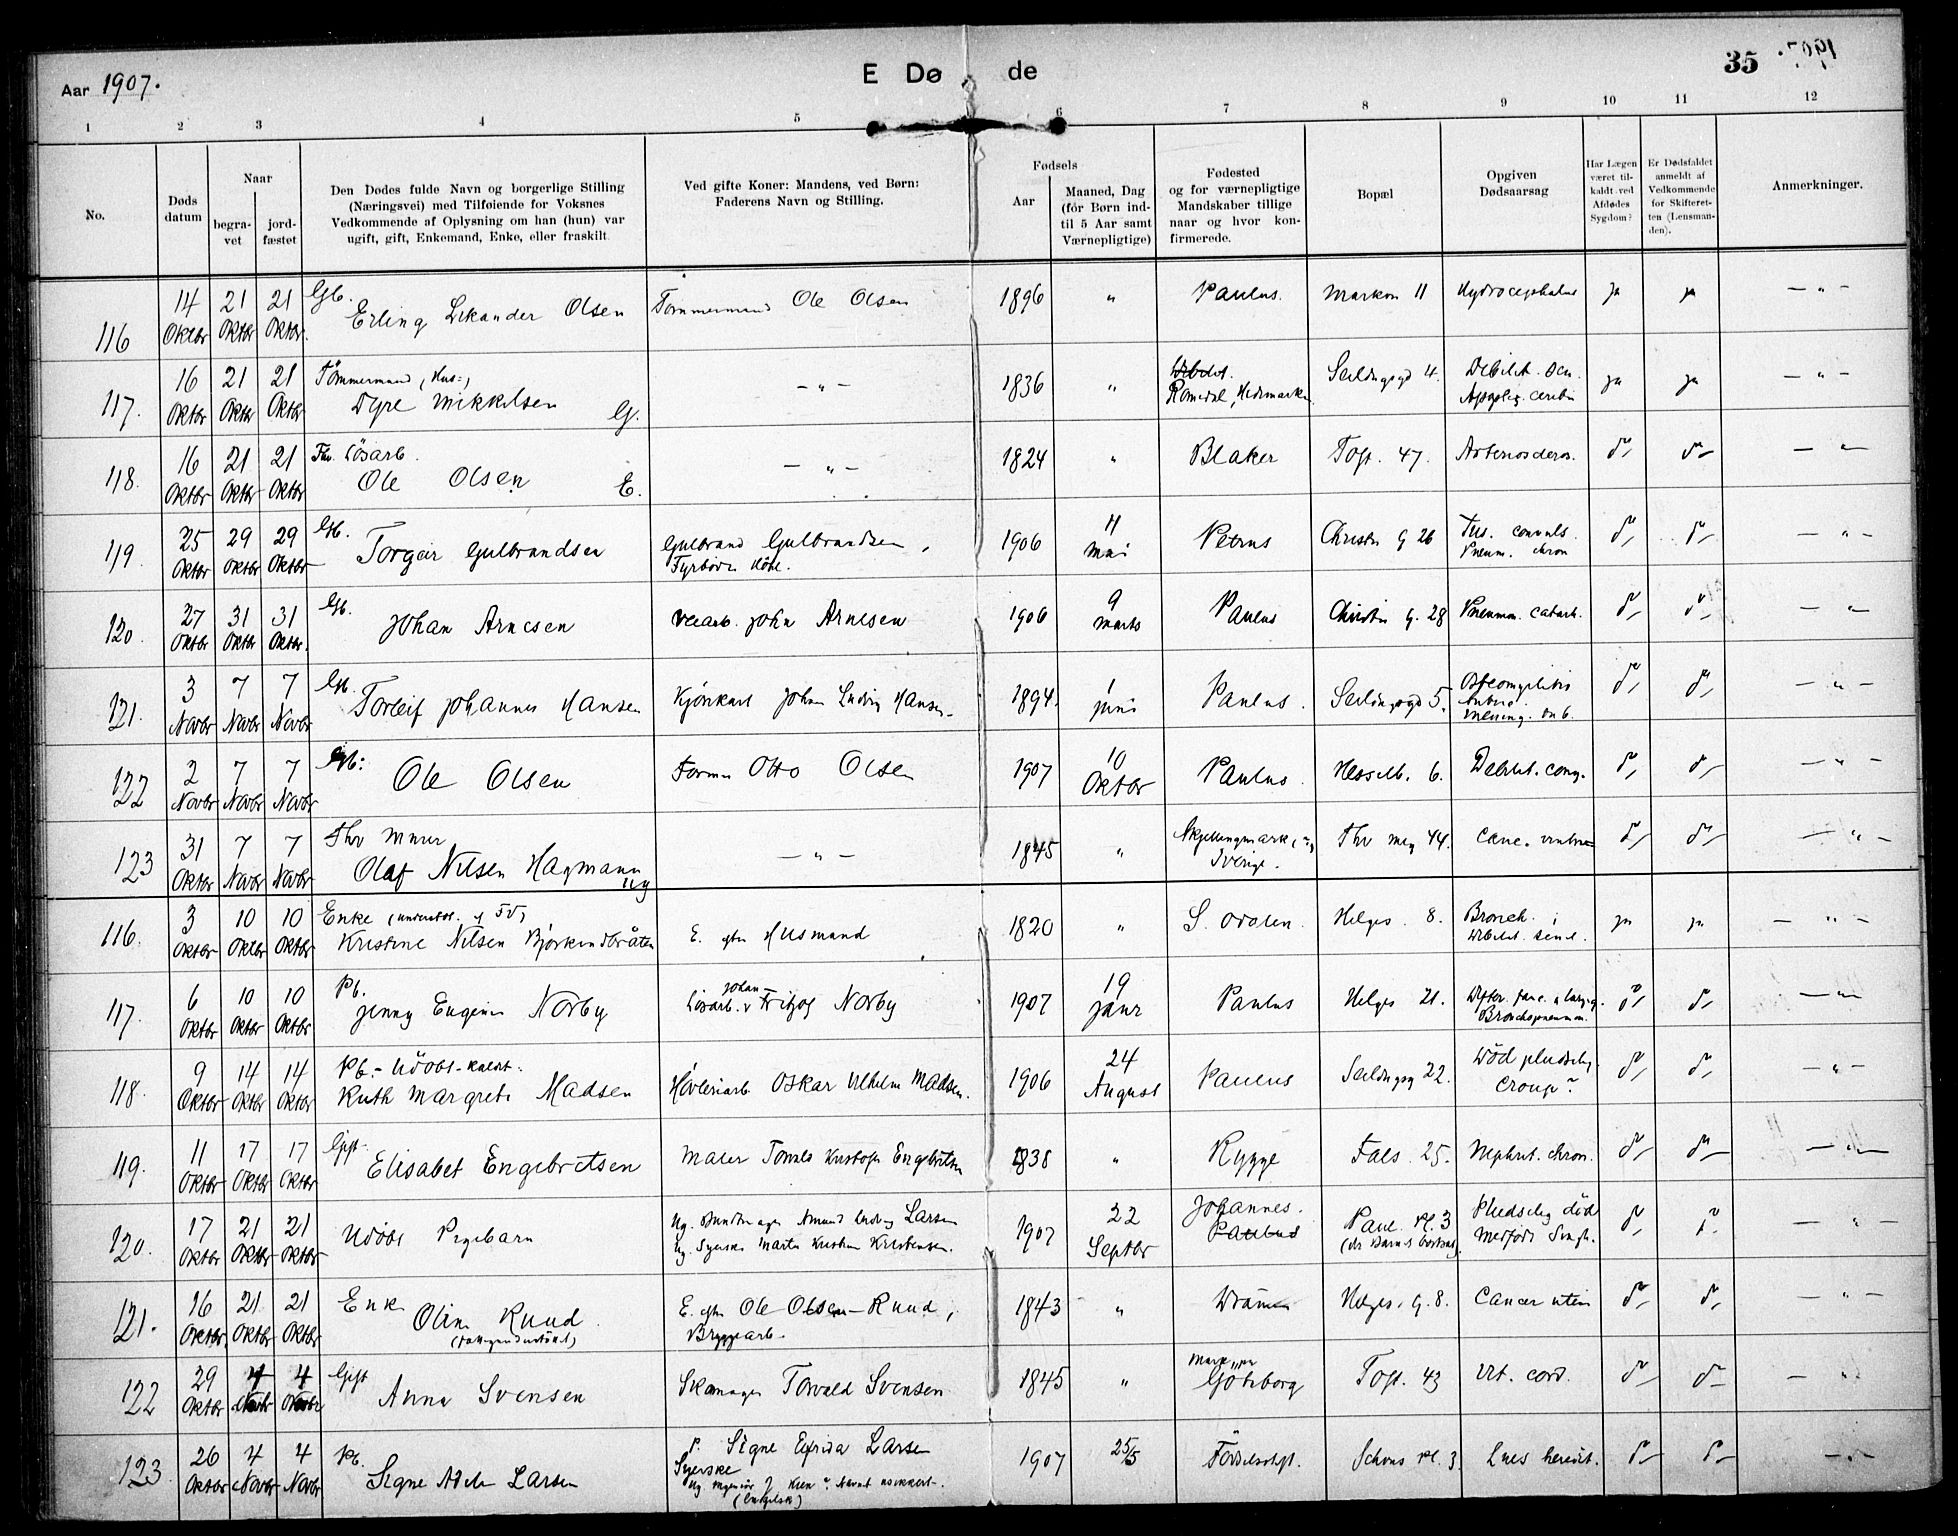 Aar 1907.
E Dø de
35
1907.
1 2 3 4 5 6 7 8 9 10 11 12
No.
Døds datum
Naar
begra-vet
jord-fæstet
Den Dødes fulde Navn og borgerlige Stilling
(Næringsvei) med Tilføiende for Voksnes
Vedkommende af Oplysning om han (hun) var
ugift, gift, Enkemand, Enke, eller fraskilt
Ved gifte Koner: Mandens, ved Børn:
Faderens Navn og Stilling.
Fødsels
Aar
Maaned, Dag
(for Børn ind-
til 5 Aar samt
Værnepligtige)
Fødested
og for værnepligtige
Mandskaber tillige
naar og hvor kon-
firmerede.
Bopæl
Opgiven
Dødsaarsag
Har Lægen
været til-
kaldt ved
Afdødes
Sygdom?
Er Dødsfaldet
anmeldt af
Vedkommende
for Skifteret-
ten (Lensman-
den).
Anmerkninger.
116 14 Oktbr 21 Oktbr 21 Oktbr. Gb. Erling Olsen Tømmermand Ole Olsen 1896 " Paulus. Markv 11 Hydrocephalus ja ja — " —
117. 16 Oktbr 21 Oktbr 21 Oktbr Tømmermand, (Hus:) Dyre Mikkelsen G. — " — 1836 " Romedal, Hedemarken. Seildugsgd 4. Debilit. sen. Apoplex. cerebri ja ja — " —
118. 16 Oktbr 21 Oktbr 21 Oktbr Fhv. Løsarb. Ole Olsen E. — " — 1824 " Blaker Toft. 47. Arterioscleros. d° d° — " —
119. 25 Oktbr 29 Oktbr 29 Oktbr Gb. Torgeir Gulbrandsen Gulbrand Gulbrandsen, Fyrbøder 1906 11 Mai Petrus Christies G 26 Tus. convuls. Pneum. chron d° d° — " —
120. 27 Oktbr 31 Oktbr 31 Oktbr. Gb. Johan Arnesen Veiarb. John Arnesen 1906 9 Marts Paulus Christies G. 28 Pneumon. catarrh. d° d° — " —
121. 3 Novbr 7 Novbr 7 Novbr Gb. Torleif Johannes Hansen Kjørekarl Johan Ludvig Hansen 1894. 1 Juni Paulus. Seildugsgd 5. Osteomyelitis Mening. d° d° — " —
122 2 Novbr 7 Novbr 7 Novbr Gb: Ole Olsen Former Otto Olsen 1907 10 Oktbr Paulus. Hesselb. 6. Debilit. cong. d° d° — " —
123 31 Oktbr 7 Novbr 7 Novbr Fhv Murer Olaf Nilsen Hagmann ug — " — 1845 " Sverige. Thv Mey 44. Canc. ventric d° d° — " —
116. 3 Oktbr 10 Oktbr 10 Oktbr Enke (underst. af FV) Kristine Nilsen Bjørkendbråten E. efter Husmand 1820 " S. Odalen. Helges. 8. Bronch. Debilit. senil. ja ja — " —
117. 6 Oktbr 10 Oktbr 10 Oktbr Pb. Jenny Eugenie Norby Løsarb. Johan Fritjof Norby 1907 19 Janr Paulus Helges 21. Difter. fauc. Bronchopneumon. d° d° — " —
118. 9 Oktbr 14 Oktbr 14 Oktbr Pb. - Udøbt - Kaldt. Ruth Margrete Madsen Høvleriarb Oskar Vilhelm Madsen. 1906 24 August Paulus Seildugsg 22. Død pludselig. Croup? d° d° — " —
119. 11 Oktbr 17 Oktbr 17 Oktbr Gift Elisabet Engebretsen Maler Torvald Kristofer Engebretsen 1838 " Rygge Fals. 25. Nephrit. chron. d° d° — " —
120. 17 Oktbr 21 Oktbr 21 Oktbr Udøbt Pigebarn Ug. Larsen Ug. Syerske Marta Kristine Kristensen. 1907 22 Septbr Johannes. Paulus Paul. Pl. 3 Pludselig død d° d° — " —
121. 16 Oktbr. 21 Oktbr 21 Oktbr Enke Oline Ruud (fattigunderstøttet) E. efter Ole Olsen Ruud, Bryggearb. 1843 " Drammen Helges. G. 8. Cancer uteri d° d° — " —
122 29 Oktbr 4 Novbr 4 Novbr Gift Anna Svensen Skomager Torvald Svensen 1845 " Göteborg Toft. 43 Vit. cord. d° d° — "
123 26 Oktbr 4 Novbr 4 Novbr Pb. Signe Adele Larsen P. Signe Elfrida Larsen Syerske Ug Ingeniør (Engelsk) 1907 25/5 Fødselsst. Schous Pl. 3. Lues heredit. d° d° — " —